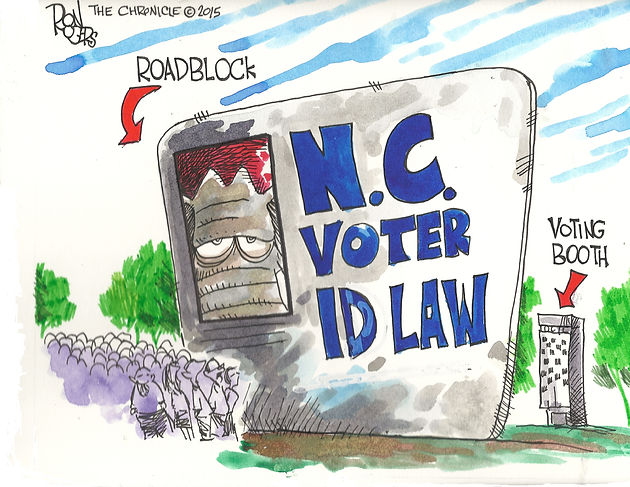 RON ROGERS THE CHRONICLE © 2015
ROADBLOCK
N.C.
VOTER
ID LAW
VOTING
BOOTH